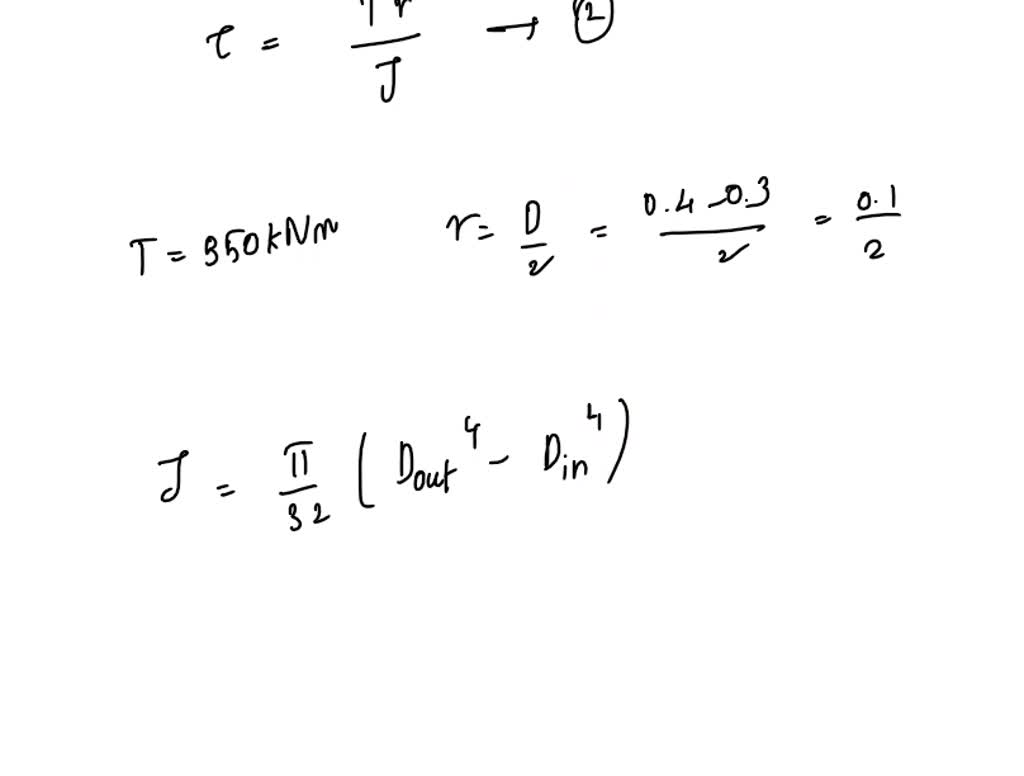 τ = Tr/J → ②
T = 350kNm r = D/2 = 0.4-0.3/2 = 0.1/2
J = π/32 (Dout⁴ - Din⁴)